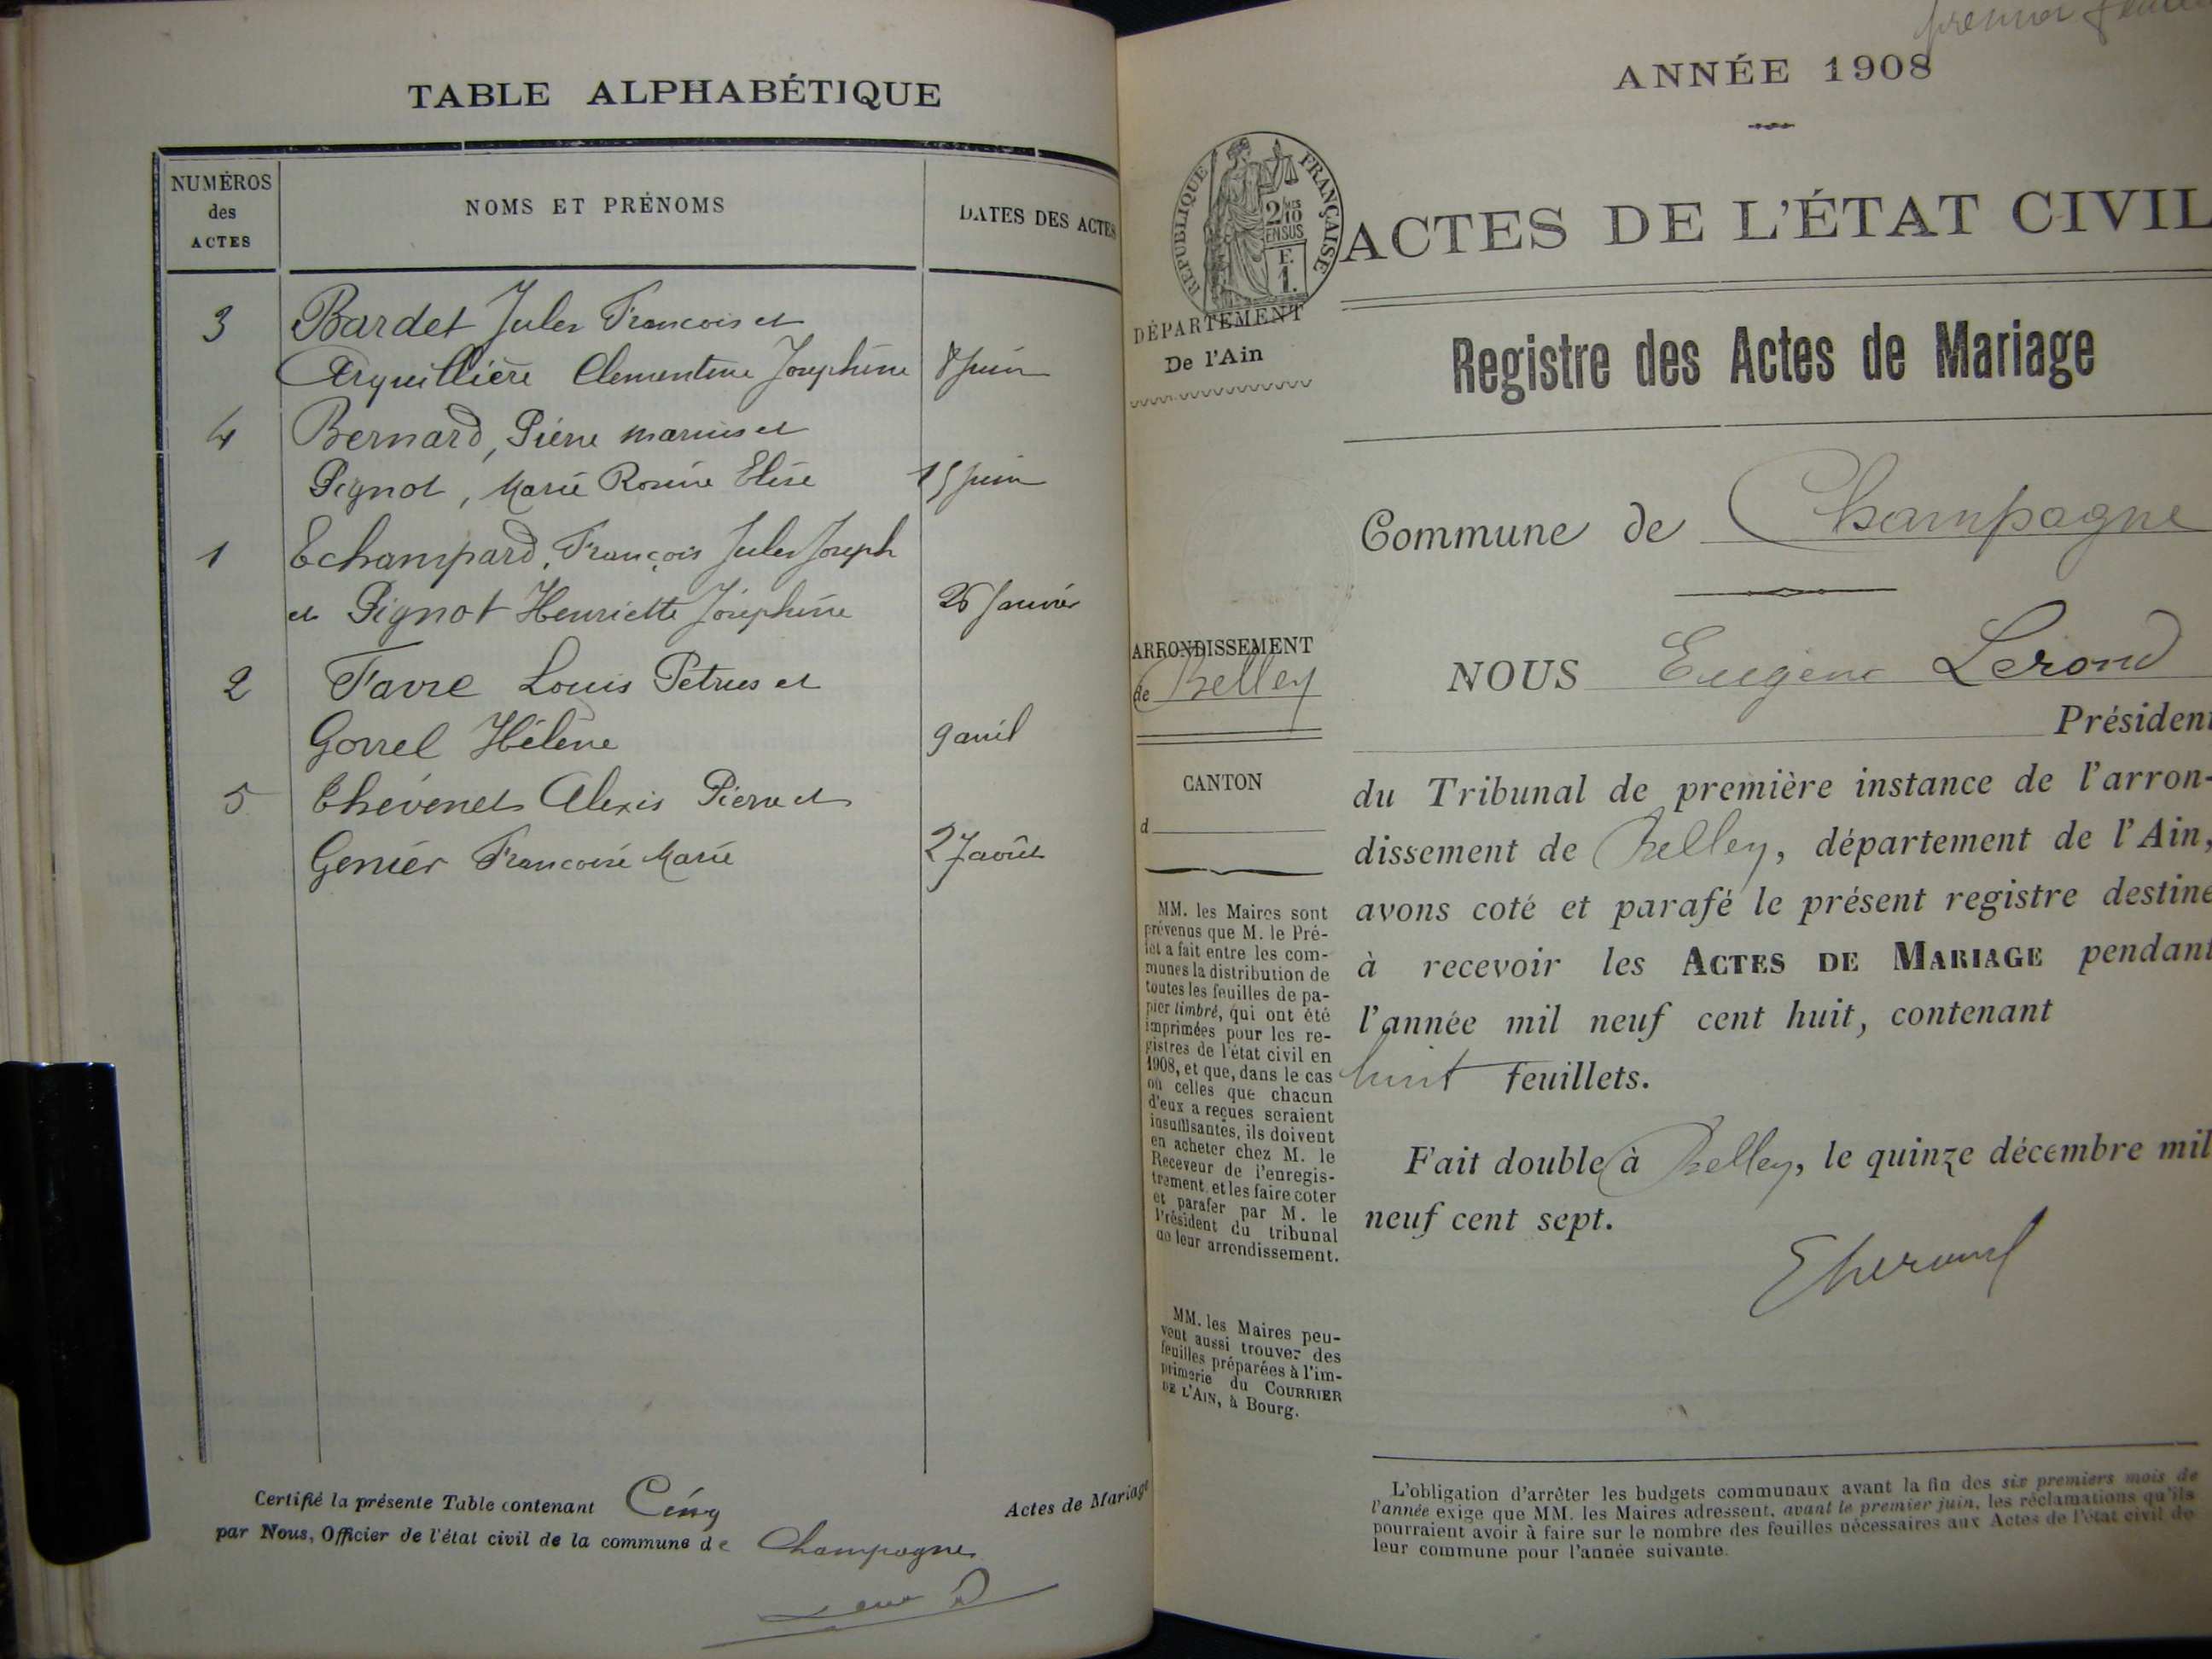 TABLE ALPHABÉTIQUE
NUMÉROS
des
ACTES
NOMS ET PRÉNOMS
DATES DES ACTES
3 Bardet Jules Francois et
Arquillière Clementine Josephine 8 Juin
4 Bernard, Pierre marius et
Pignot, Marie Rosine Elise 15 Juin
1 Echampard, François Jules Joseph
et Pignot Henriette Joséphine 26 Janvier
2 Favre Louis Petrus et
Gorrel Hélène 9 avril
5 Thévenet Alexis Pierre et
Genier Francoise Marie 27 août
Certifié la présente Table contenant Cinq Actes de Mariage
par Nous, Officier de l'état civil de la commune de Champagne
premier
ANNÉE 1908
RÉPUBLIQUE FRANÇAISE
2/10
EN SUS
F.
1.
ACTES DE L'ÉTAT CIVIL
DÉPARTEMENT
De l'Ain
Registre des Actes de Mariage
Commune de Champagne
ARRONDISSEMENT
de Belley
CANTON
d
NOUS Eugène Lerond
Président
du Tribunal de première instance de l'arron-
dissement de Belley, département de l'Ain,
avons coté et parafé le présent registre destiné
à recevoir les ACTES DE MARIAGE pendant
l'année mil neuf cent huit, contenant
huit feuillets.
Fait double à Belley, le quinze décembre mil
neuf cent sept.
MM. les Maires sont
prévenus que M. le Pré-
fet a fait entre les com-
munes la distribution de
toutes les feuilles de pa-
pier timbré, qui ont été
imprimées pour les re-
gistres de l'état civil en
1908, et que, dans le cas
où celles que chacun
d'eux a reçues seraient
insuffisantes, ils doivent
en acheter chez M. le
Receveur de l'enregis-
trement et les faire coter
et parafer par M. le
Président du tribunal
de leur arrondissement.
MM. les Maires peu-
vent aussi trouver des
feuilles préparées à l'im-
primerie du COURRIER
DE L'AIN, à Bourg.
L'obligation d'arrêter les budgets communaux avant la fin des six premiers mois de
l'année exige que MM. les Maires adressent, avant le premier juin, les réclamations qu'ils
pourraient avoir à faire sur le nombre des feuilles nécessaires aux Actes de l'état civil de
leur commune pour l'année suivante.